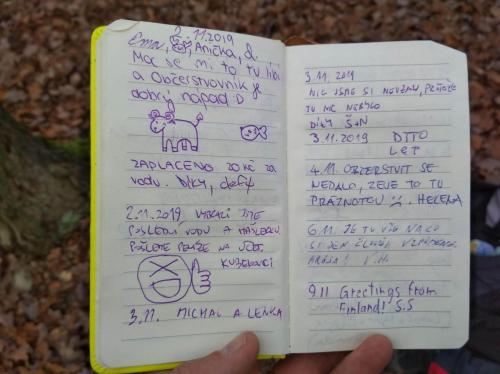 2.11.2019
Ema, Anička, d.
Moc se mi to tu líbí
a Občerstvovník je
dobrý nápad :D
ZAPLACENO 20 KČ ZA
vodu. Díky,
2.11.2019
POSLEDNÍ VODU A
POŠLETE PENÍZE NA ÚČET
3.11. MICHAL A LENKA
3.11. 2019
NIC JSME SI NEVZALI, PROTOŽE
TU NIC NEBYLO
DÍKY Š+N
3.11.2019 DITTO
4.11. OBČERSTVIT SE
NEDALO, ZEVE TO TU
PRÁZDNOTOU :(. HELENA
6.11. JE TU VŠE NA CO
SI JEN ČLOVĚK
V.H.
9.11 Greetings from
Finland! S.S